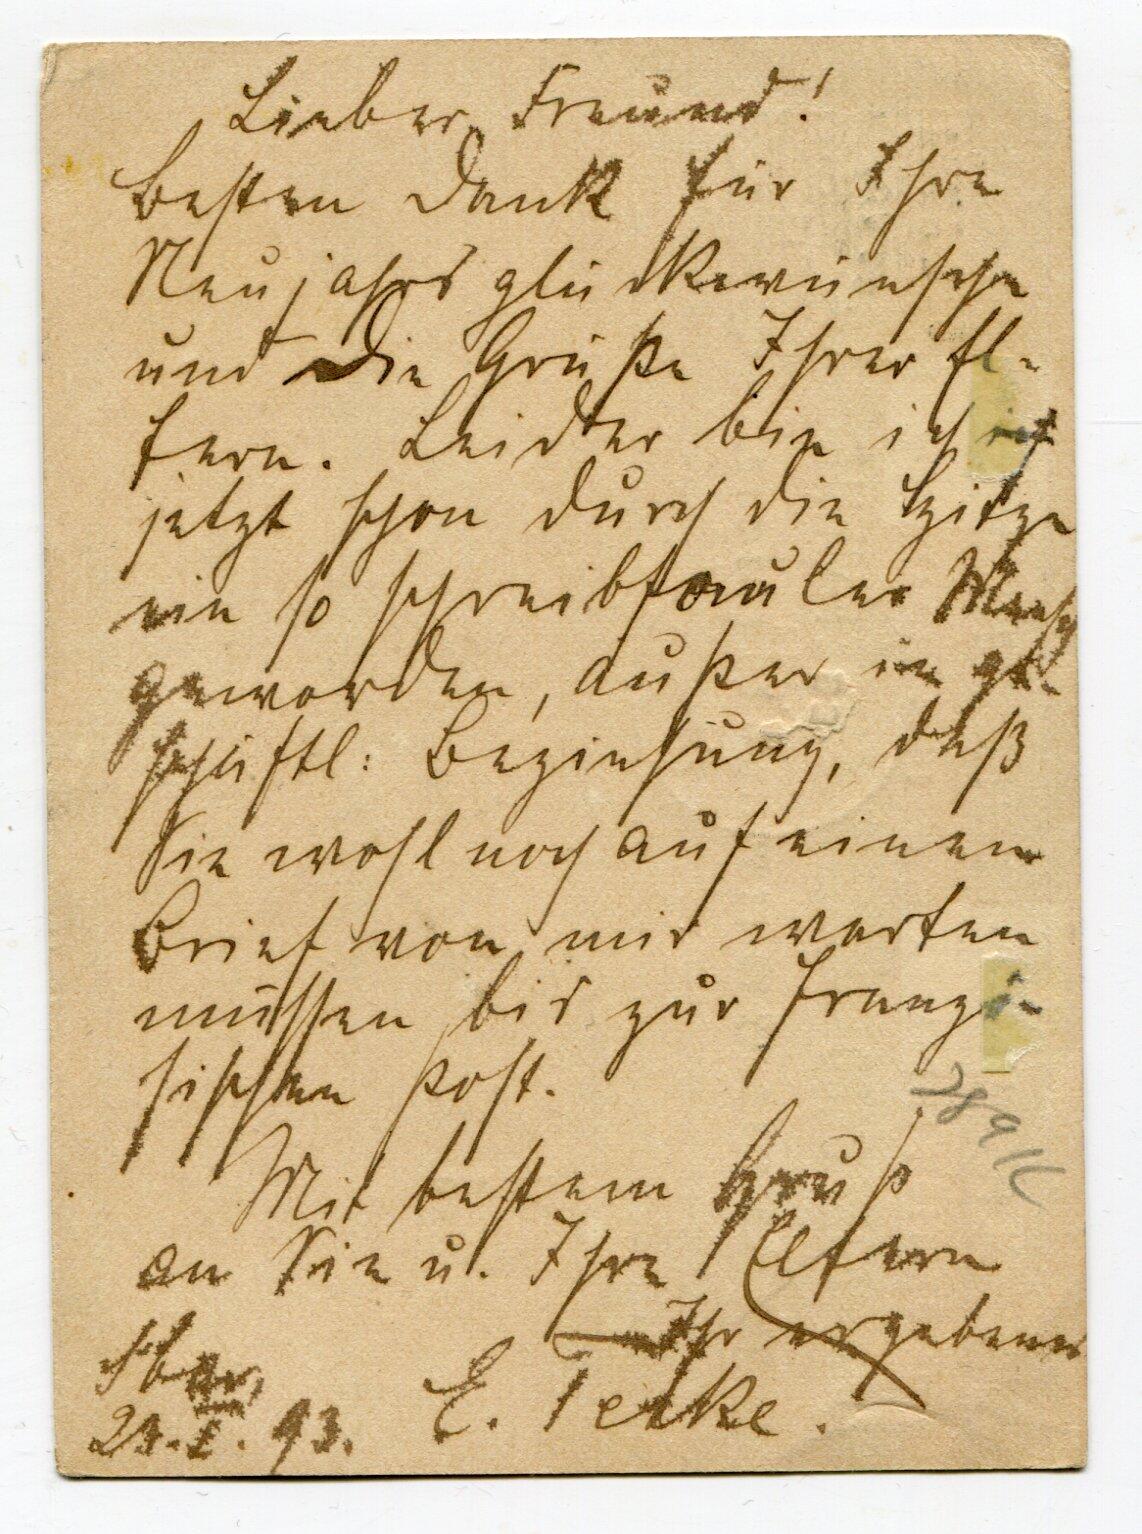 Lieber Freund!
Besten Dank für Ihre
Neujahrsglückwünsche
und die Grüße Ihrer El-
tern. Leider bin ich
jetzt schon durch die Hitze
ein so schreibfauler Mensch
geworden, außer in ge-
schäftl: Beziehung, daß
Sie wohl noch auf einen
Brief von mir warten
müssen bis zur franzö-
sischen Post.
Mit bestem Gruß
an Sie u. Ihre Eltern
Ihr ergebener
E. Tetke.
93.